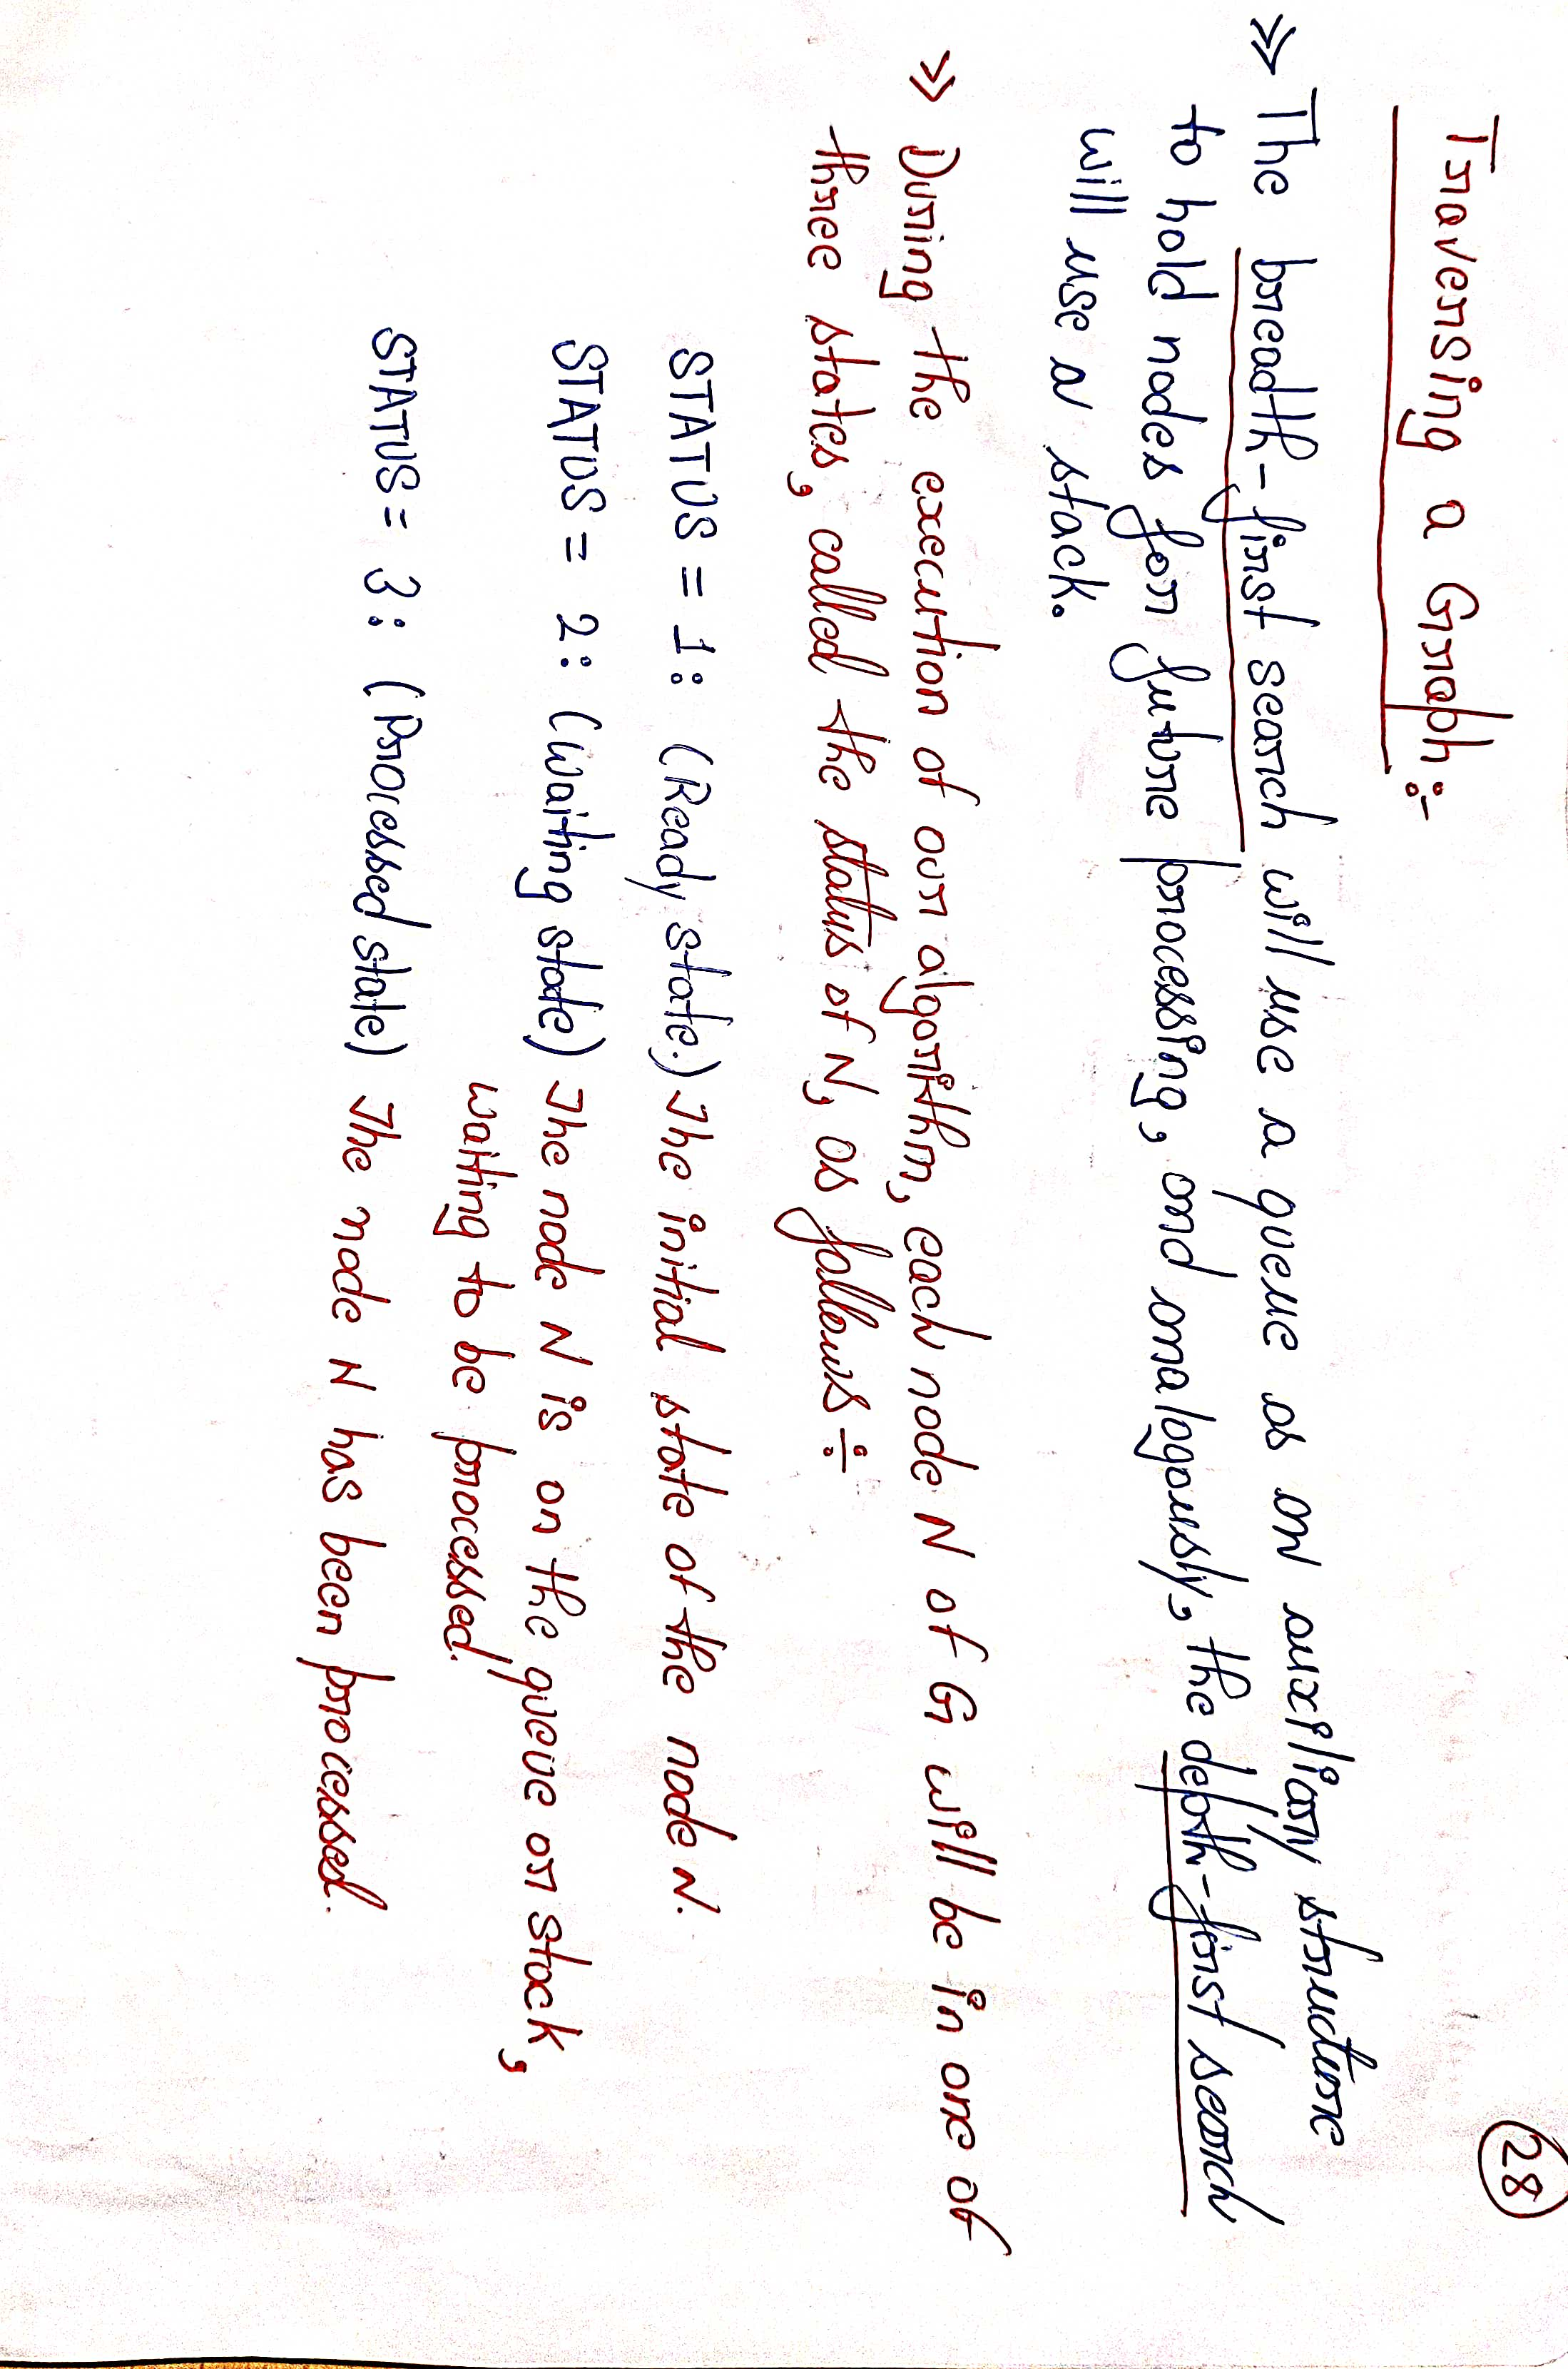 28
Traversing a Graph:-
>> The breadth-first search will use a queue as an auxiliary structure
to hold nodes for future processing, and analogously, the depth-first search
will use a stack.
>> During the execution of our algorithm, each node N of G will be in one of
three states, called the status of N, as follows÷
STATUS = 1: (Ready state.) The initial state of the node N.
STATUS = 2: (Waiting state) The node N is on the queue or stack,
waiting to be processed.
STATUS = 3: (Processed state) The node N has been processed.